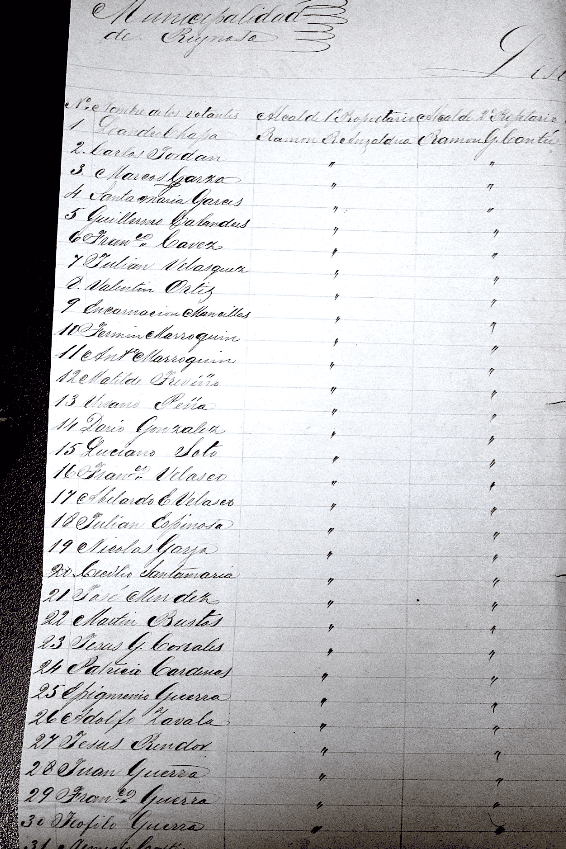 Municipalidad
de Reynosa
Nº Nombre de los votantes Alcalde 1º Propietario Alcalde 2º Propietario
1 Leandro Chapa Ramon R. Ramon G. Cantú
2. Carlos Tordan " "
3. Marcos Garza " "
4 Santa Maria Garces " "
5 Guillermo Galandus " "
6 Franco. Cavez " "
7 Julian Velasquez " "
8. Valentin Ortiz " "
9 Encarnacion Mancillas " "
10 Fermin Marroquin " "
11 Anto Marroquin " "
12 Matilde Treviño " "
13 Urbano Peña " "
14 Dario Gonzalez " "
15 Luciano Soto " "
16 Franco. Velasco " "
17 Abilardo E. Velasco " "
18 Julian Espinosa " "
19 Nicolas Garza " "
20 Cecilio Santamaria " "
21 José Mendez " "
22 Martin Bustos " "
23 Jesus G. Corrales " "
24 Patricio Cardenas " "
25 Epigmenio Guerra " "
26 Adolfo Zavala " "
27 Jesus Rendon " "
28 Juan Guerra " "
29 Franco Guerra " "
30 Teofilo Guerra " "
31